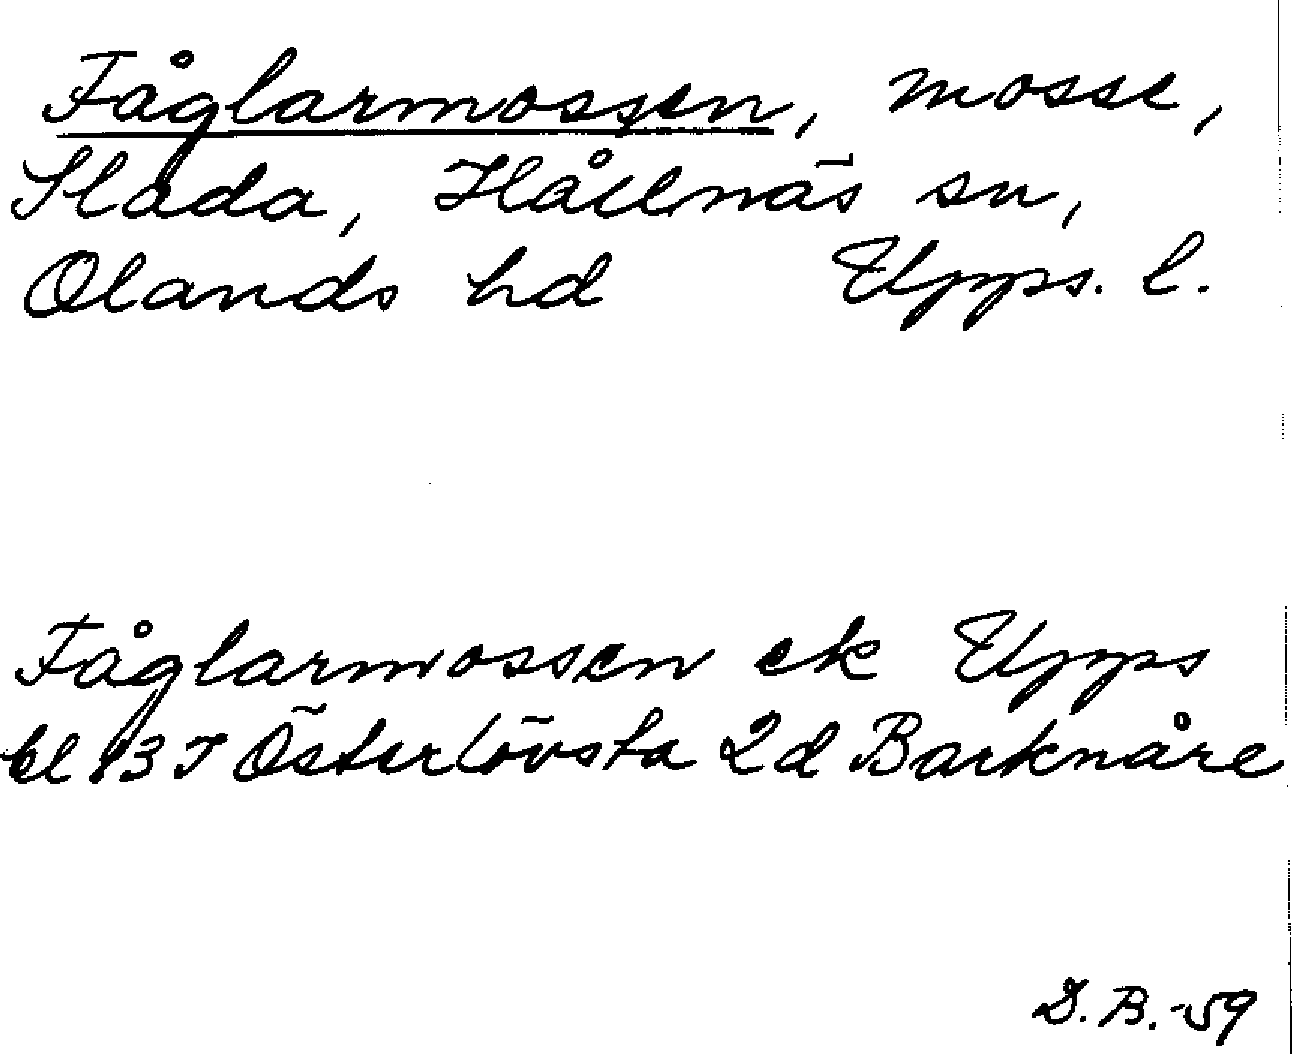 Fåglarmossen, mosse,
Slada, Hållnäs sn,
Olands hd Upps. l.
Fåglarmossen ek Upps
bl 83 I Österlövsta 2d Barknåre
D.B.-59